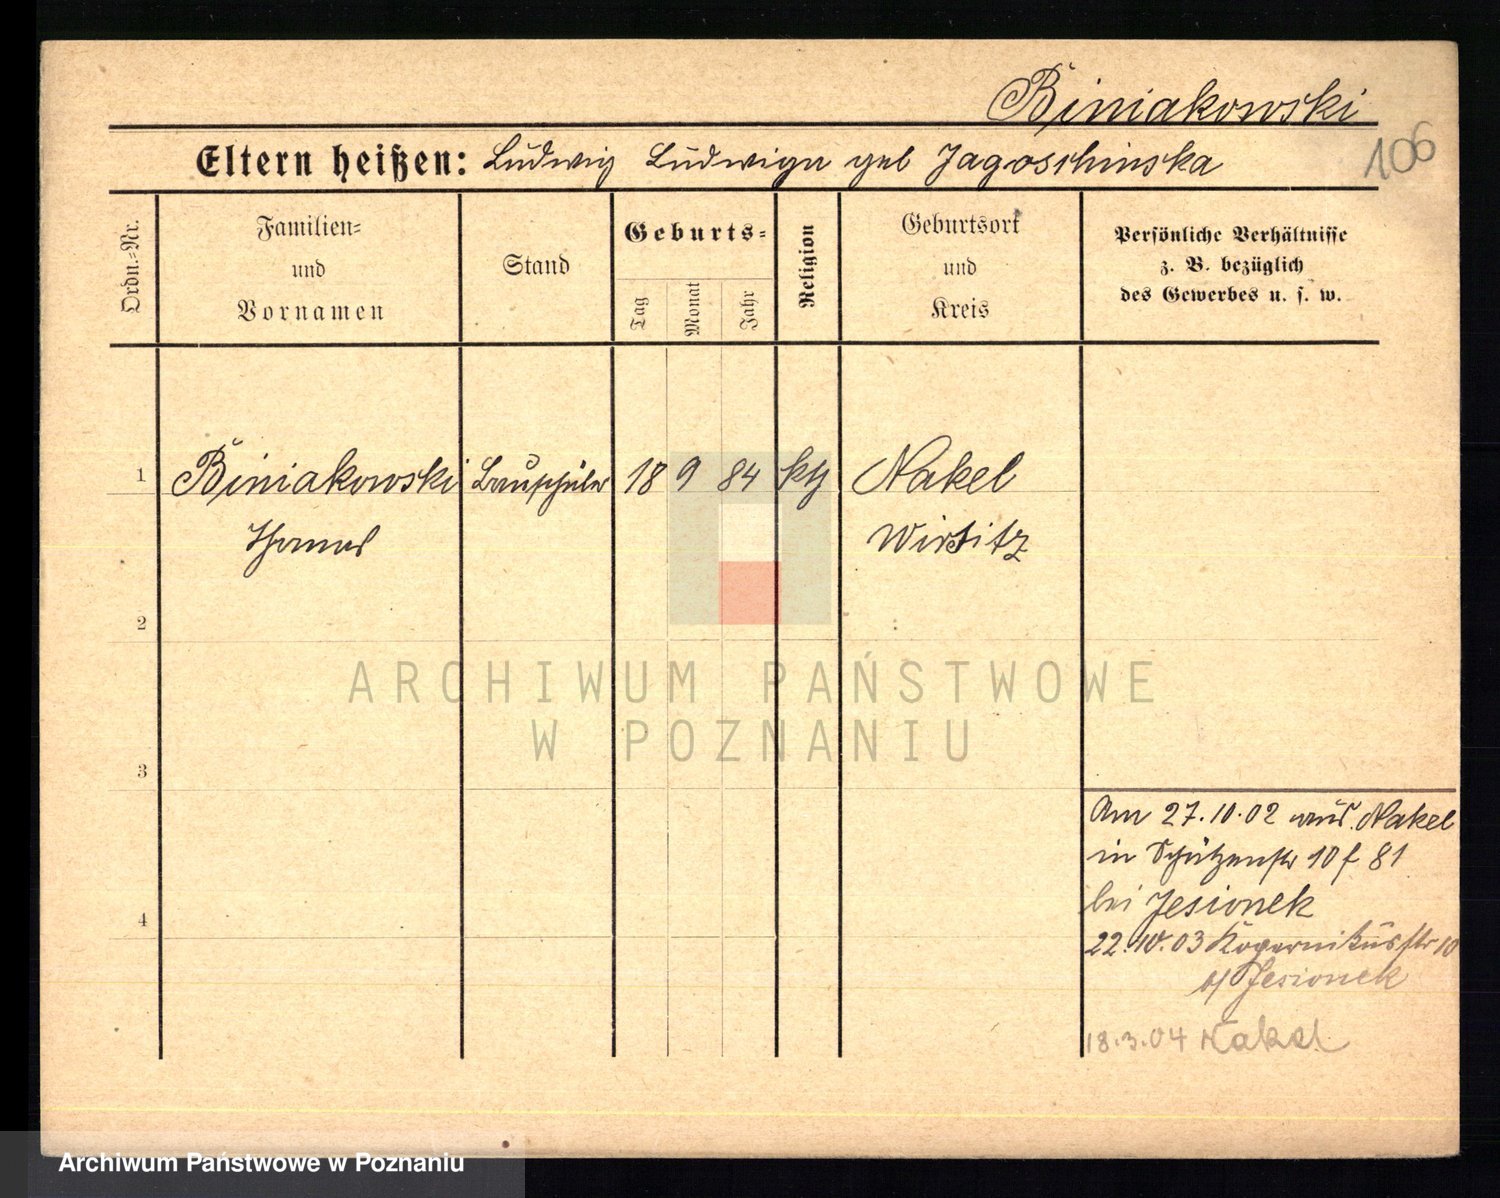 Biniakowski
106
Eltern heißen: Ludwig Ludwiga geb Jagoschinska
Ordn.-Nr.
Familien-
und
Vornamen
Stand
Geburts-
Tag
Monat
Jahr
Religion
Geburtsort
und
Kreis
Persönliche Verhältnisse
z. B. bezüglich
des Gewerbes u. s. w.
1 Biniakowski Bauschüler 18 9 84 kth Nakel
Thomas Wirsitz
2
3
4
Am 27.10.02 aus Nakel
in Schützenstr 10 f 81
bei Jesionek
22.10.03 Kopernikusstr 10
b/ Jesionek
18.3.04 Nakel
ARCHIWUM PAŃSTWOWE
W POZNANIU
Archiwum Państwowe w Poznaniu